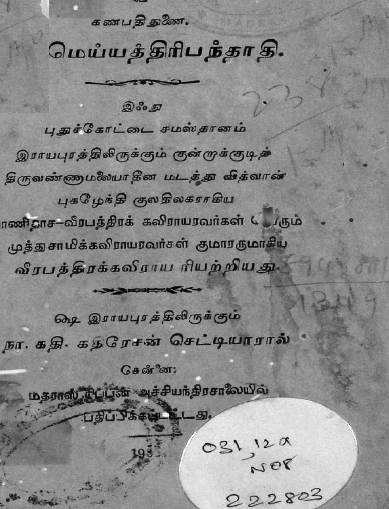 கணபதிதுணை.
மெய்யத்திரிபந்தாதி.
இஃது
புதுக்கோட்டை சமஸ்தானம்
இராயபுரத்திலிருக்கும் குன்றக்குடித்
திருவண்ணாமலையாதீன மடத்து வித்வான்
புகழேந்தி குலதிலகராகிய
வீரபத்திரக் கவிராயரவர்கள்
முத்துசாமிக்கவிராயரவர்கள் குமாரருமாகிய
வீரபத்திரக்கவிராய ரியற்றியது.
ஷை இராயபுரத்திலிருக்கும்
நா. கதி. கதிரேசன் செட்டியாரால்
சென்னை:
மதராஸ் டைமன் அச்சியந்திரசாலையில்
பதிப்பிக்கப்பட்டது.
031,12x
N08
222803